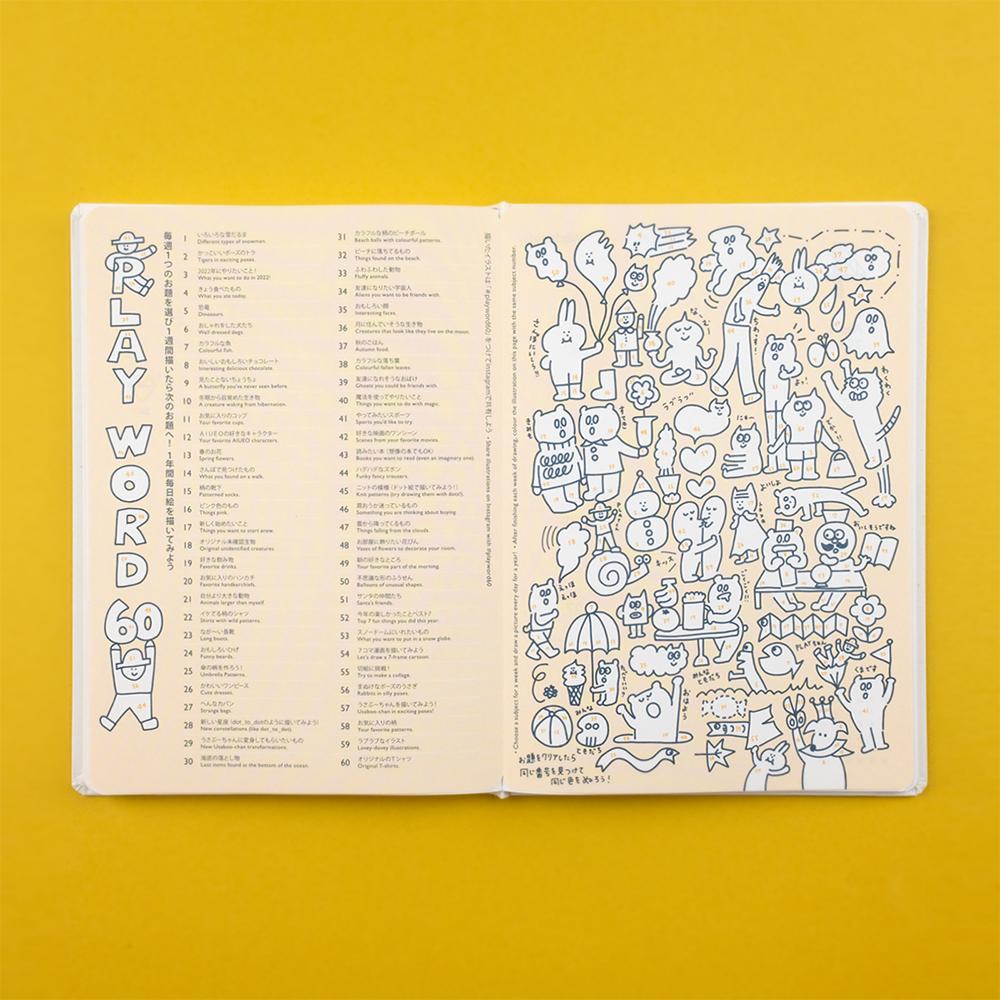 PLAY WORD 60
毎週1つのお題を選び1週間描いたら次のお題へ！1年間毎日絵を描いてみよう
1 いろいろな雪だるま
Different types of snowman.
2 かっこいいポーズのトラ
Tigers in exciting poses.
3 2022年にやりたいこと！
What you want to do in 2022!
4 きょう食べたもの
What you ate today.
5 恐竜
Dinosaurs.
6 おしゃれをした犬たち
Well dressed dogs.
7 カラフルな魚
Colourful fish.
8 おいしいおもしろいチョコレート
Interesting delicious chocolate.
9 見たことないちょうちょ
A butterfly you've never seen before.
10 冬眠から目覚めた生き物
A creature waking from hibernation.
11 お気に入りのコップ
Your favorite cups.
12 AIUEOの好きなキャラクター
Your favorite AIUEO characters.
13 春のお花
Spring flowers.
14 さんぽで見つけたもの
What you found on a walk.
15 柄の靴下
Patterned socks.
16 ピンク色のもの
Things pink.
17 新しく始めたいこと
Things you want to start anew.
18 オリジナル未確認生物
Original unidentified creatures.
19 好きな飲み物
Favorite drinks.
20 お気に入りのハンカチ
Favorite handkerchiefs.
21 自分より大きな動物
Animals larger than myself.
22 イケてる柄のシャツ
Shirts with wild patterns.
23 なが〜い長靴
Long boots.
24 おもしろいひげ
Funny beards.
25 傘の柄を作ろう！
Umbrella Patterns.
26 かわいいワンピース
Cute dresses.
27 へんなカバン
Strange bags.
28 新しい星座（dot_to_dotのように描いてみよう）
New constellations (like dot_to_dot).
29 うさぶーちゃんに変身してもらいたいもの
New Usaboo-chan transformations.
30 海底の落とし物
Lost items found at the bottom of the ocean.
31 カラフルな柄のビーチボール
Beach balls with colourful patterns.
32 ビーチに落ちてるもの
Things found on the beach.
33 ふわふわした動物
Fluffy animals.
34 友達になりたい宇宙人
Aliens you want to be friends with.
35 おもしろい顔
Interesting faces.
36 月に住んでいそうな生き物
Creatures that look like they live on the moon.
37 秋のごはん
Autumn food.
38 カラフルな落ち葉
Colourful fallen leaves.
39 友達になれそうなおばけ
Ghosts you could be friends with.
40 魔法を使ってやりたいこと
Things you want to do with magic.
41 やってみたいスポーツ
Sports you'd like to try.
42 好きな映画のワンシーン
Scenes from your favorite movies.
43 読みたい本（想像の本でもOK）
Books you want to read (even an imaginary one).
44 ハデハデなズボン
Funky fancy trousers.
45 ニットの模様（ドット絵で描いてみよう！）
Knit patterns (try drawing them with dots!).
46 買おうか迷っているもの
Something you are thinking about buying
47 雲から降ってくるもの
Things falling from the clouds.
48 お部屋に飾りたい花びん
Vases of flowers to decorate your room.
49 朝の好きなところ
Your favorite part of the morning.
50 不思議な形のふうせん
Balloons of unusual shapes.
51 サンタの仲間たち
Santa's friends.
52 今年の楽しかったことベスト7
Top 7 fun things you did this year.
53 スノードームにいれたいもの
What you want to put in a snow globe.
54 7コマ漫画を描いてみよう
Let's draw a 7-frame cartoon.
55 切絵に挑戦！
Try to make a collage.
56 まぬけなポーズのうさぎ
Rabbits in silly poses.
57 うさぶーちゃんを描いてみよう！
Usaboo-chan in exciting poses!
58 お気に入りの柄
Your favorite patterns.
59 ラブラブなイラスト
Lovey-dovey illustrations.
60 オリジナルのTシャツ
Original T-shirts.
描いたイラストは「#playword60」をつけてInstagramで共有しよう • Share illustration on Instagram with #playword60
• Choose a subject for a week and draw a picture every day for a year! • After finishing each week of drawing, colour the illustration on this page with the same subject number.
ラブラブ
わくわく
よいしょ
えっほ
えっほ
PLAYちゃん
くまです
みんな
ともだち
みんな
ともだち
おはよう
お題をクリアしたら
同じ番号を見つけて
同じ色をぬろう！